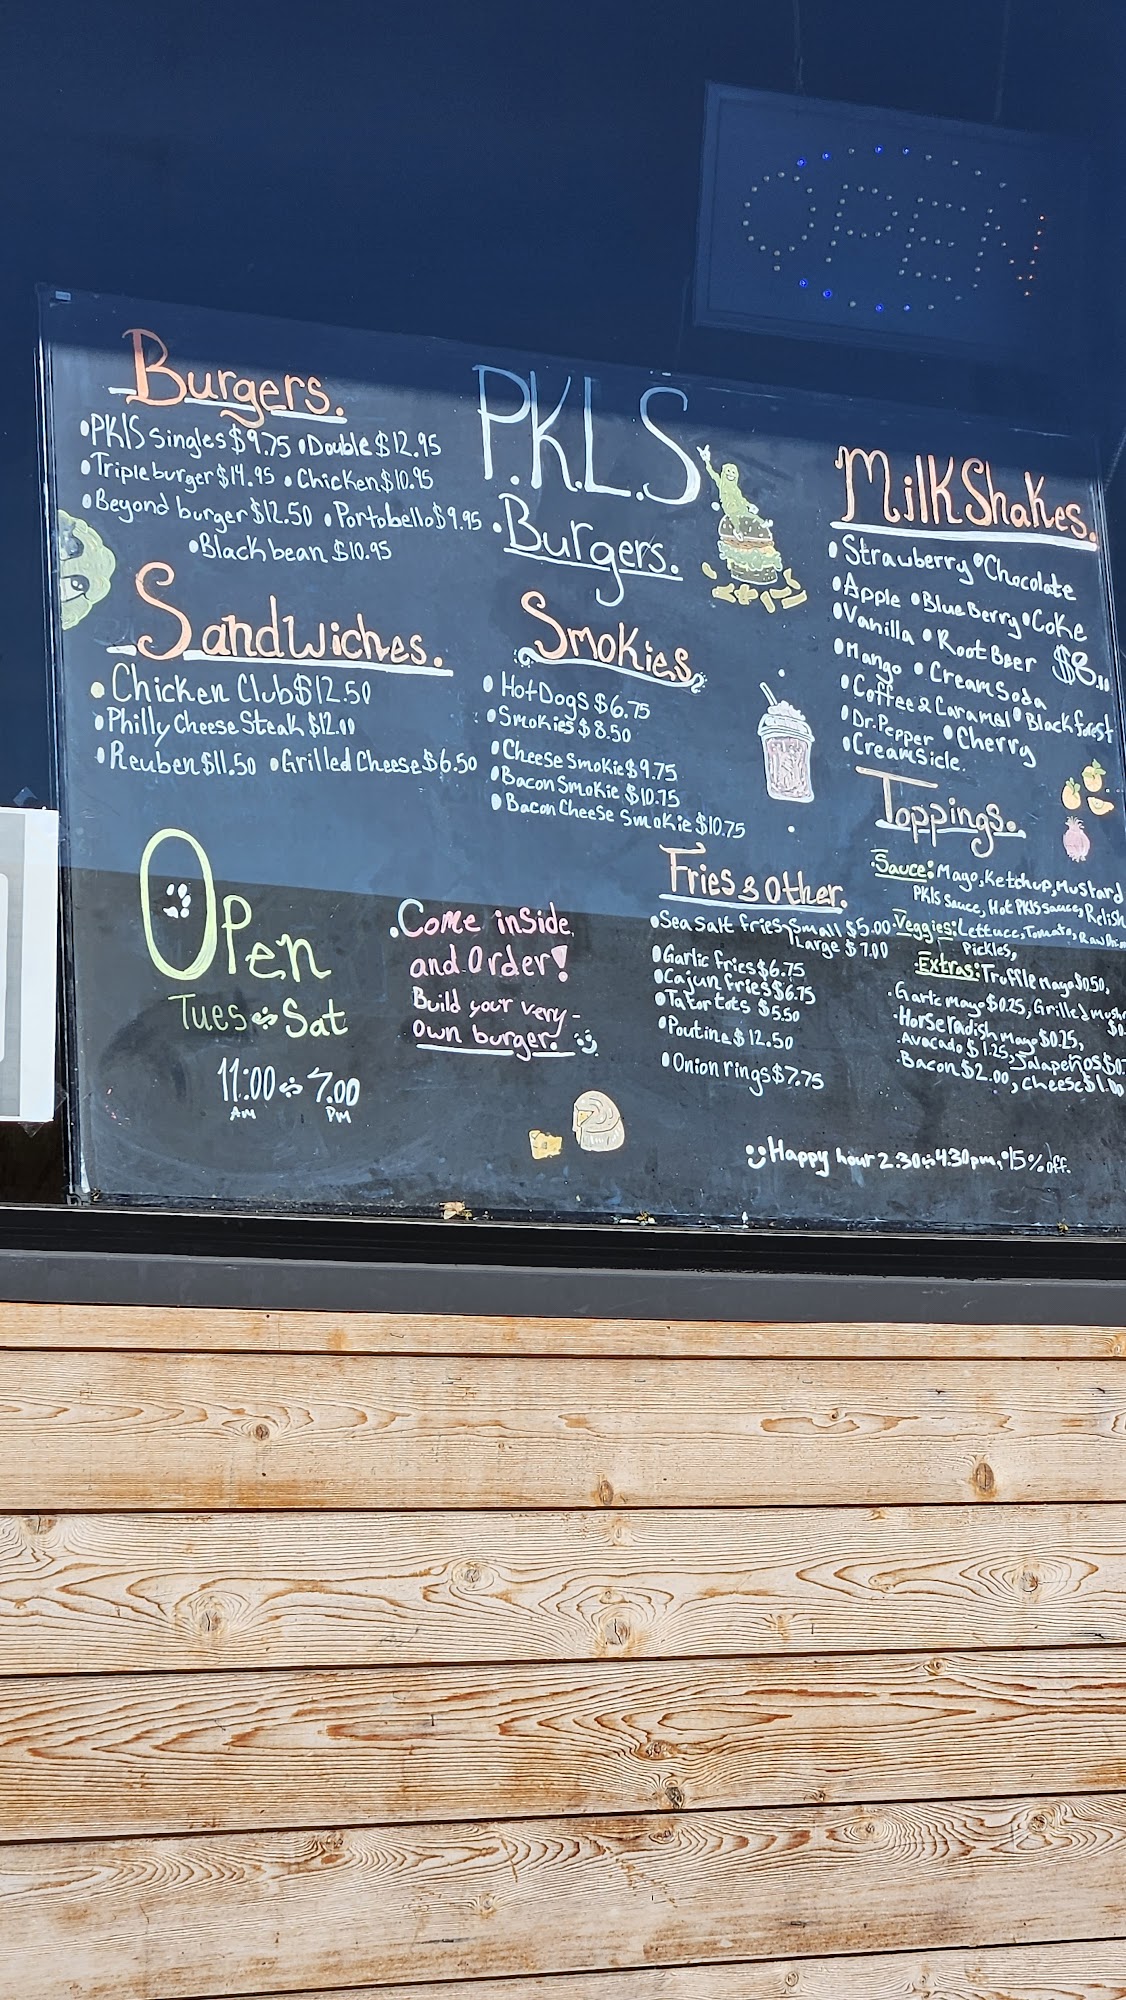 OPEN
P.K.L.S
Burgers.
Burgers.
•PKlS Singles $9.75 •Double $12.95
•Triple burger $14.95 •Chicken $10.95
•Beyond burger $12.50 •Portobello $9.95
•Black bean $10.95
Sandwiches.
•Chicken Club $12.50
•Philly Cheese Steak $12.00
•Reuben $11.50 •Grilled Cheese $6.50
Smokies
•Hot Dogs $6.75
•Smokies $8.50
•Cheese Smokie $9.75
•Bacon Smokie $10.75
•Bacon Cheese Smokie $10.75
MilkShakes.
•Strawberry •Chocolate
•Apple •BlueBerry •Coke
•Vanilla •Root Beer $8.
•Mango •Cream Soda
•Coffee & Caramel •Black forest
•Dr.Pepper •Cherry
•Creamsicle.
Toppings.
•Sauce: Mayo, Ketchup, Mustard
PKlS Sauce, Hot PKlS sauce, Relish
•Veggies: Lettuce, Tomato, Raw
Pickles,
Extras: Truffle mayo $0.50,
•Garlic mayo $0.25, Grilled
•Horseradish mayo $0.25,
•Avocado $1.25, Jalapeños
•Bacon $2.00, Cheese $1.00
Fries & Other.
•Sea salt fries, Small $5.00
Large $7.00
•Garlic fries $6.75
•Cajun fries $6.75
•Tator tots $5.50
•Poutine $12.50
•Onion rings $7.75
Open
Tues - Sat
11:00 - 7.00
AM PM
•Come inside
and Order!
Build your very-
own burger.
Happy hour 2.30 - 4.30pm, •15% off.